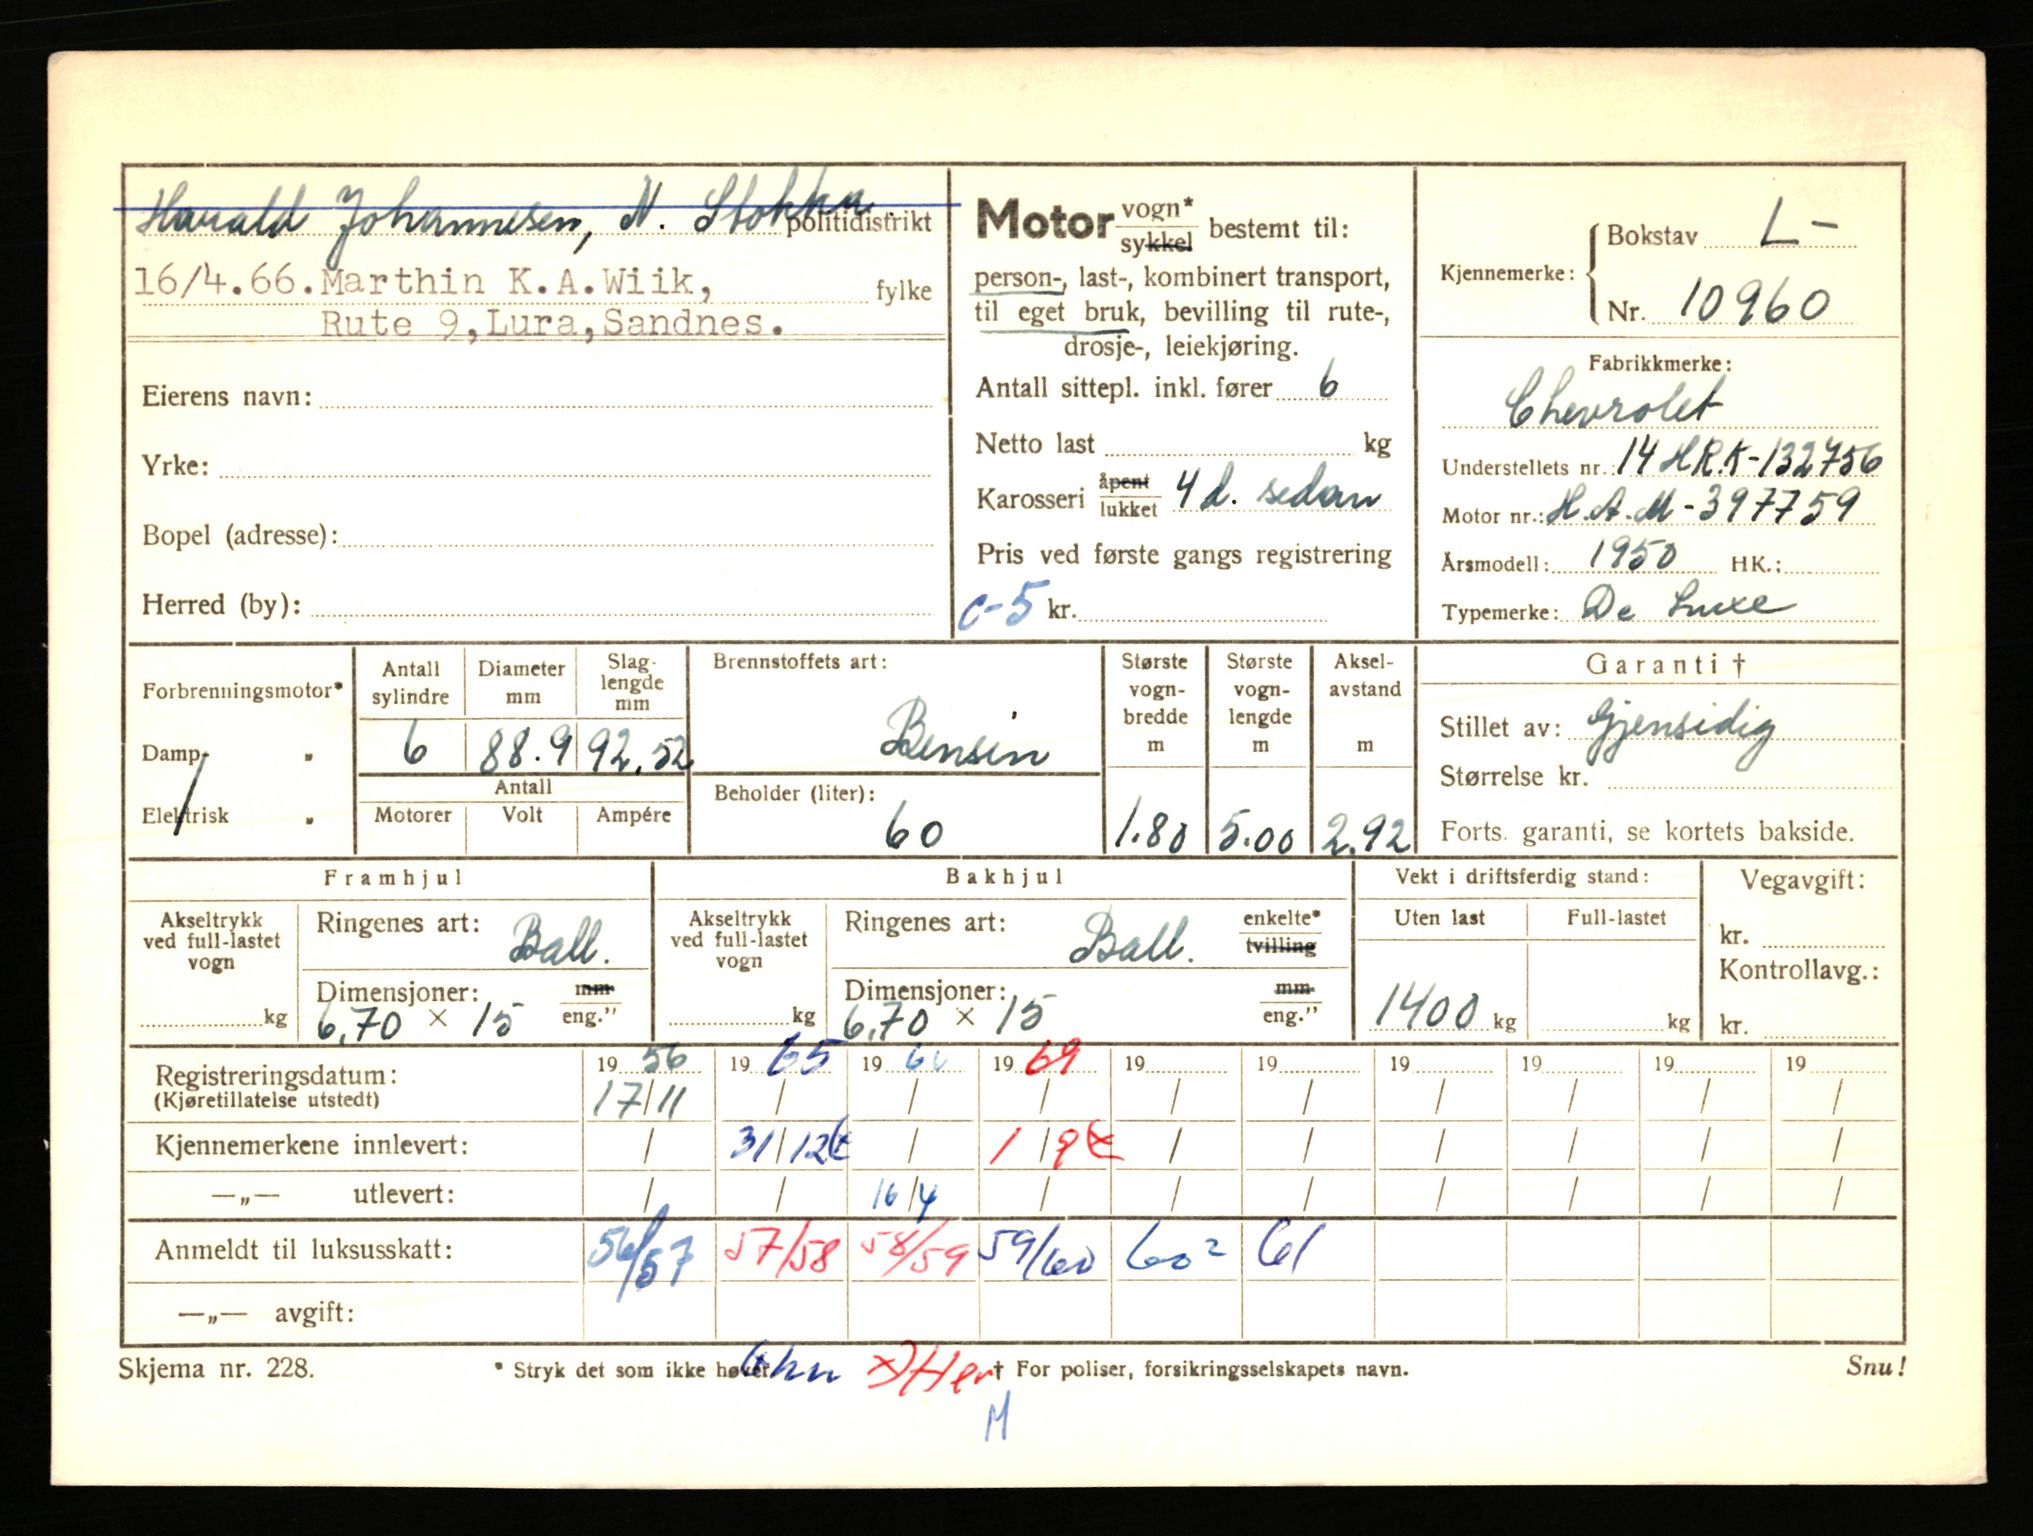 Harald Johannesen, N. Stokka. politidistrikt
16/4.66. Marthin K.A. Wiik, fylke
Rute 9, Lura, Sandnes.
Eierens navn:
Yrke:
Bopel (adresse):
Herred (by):
Motor vogn* sykkel bestemt til:
person-, last-, kombinert transport,
til eget bruk, bevilling til rute-,
drosje-, leiekjøring.
Antall sittepl. inkl. fører 6
Netto last kg
Karosseri åpent lukket 4 d. sedan
Pris ved første gangs registrering
c-5 kr.
Kjennemerke: Bokstav L-
Nr. 10960
Fabrikkmerke:
Chevrolet
Understellets nr.: 14 HRK-132756
Motor nr.: H.A.M-397759
Årsmodell: 1950 HK.:
Typemerke: De Luxe
Forbrenningsmotor*
Damp- "
Elektrisk "
Antall sylindre
6
Diameter mm
88.9
Slaglengde mm
92.52
Antall
Motorer Volt Ampére
Brennstoffets art:
Bensin
Beholder (liter):
60
Største vognbredde m
1.80
Største vognlengde m
5.00
Akselavstand m
2.92
Garanti †
Stillet av: Gjensidig
Størrelse kr.
Forts. garanti, se kortets bakside.
Framhjul
Akseltrykk ved full-lastet vogn
kg
Ringenes art: Ball.
Dimensjoner: mm eng."
6.70 × 15
Bakhjul
Akseltrykk ved full-lastet vogn
kg
Ringenes art: Ball. enkelte* tvilling
Dimensjoner: mm eng."
6.70 × 15
Vekt i driftsferdig stand:
Uten last Full-lastet
1400 kg kg
Vegavgift:
kr.
Kontrollavg.:
kr.
Registreringsdatum: 19 56 19 65 19 66 19 69 19 19 19 19 19 19
(Kjøretillatelse utstedt) 17/11 / / / / / / / / /
Kjennemerkene innlevert: / 31/12 / 1/9 x / / / / / /
—„— utlevert: / / 16/4 / / / / / / /
Anmeldt til luksusskatt: 56/57 57/58 58/59 59/60 60² 61
—„— avgift:
Skjema nr. 228. * Stryk det som ikke høver. x) Her † For poliser, forsikringsselskapets navn. Snu!
M